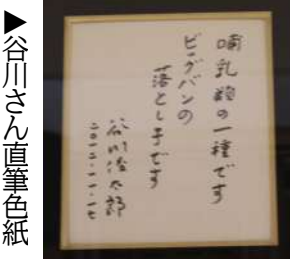 ▶谷川さん直筆色紙
哺乳類の一種です
ビッグバンの
落とし子です
谷川俊太郎
二〇一二・一一・一七